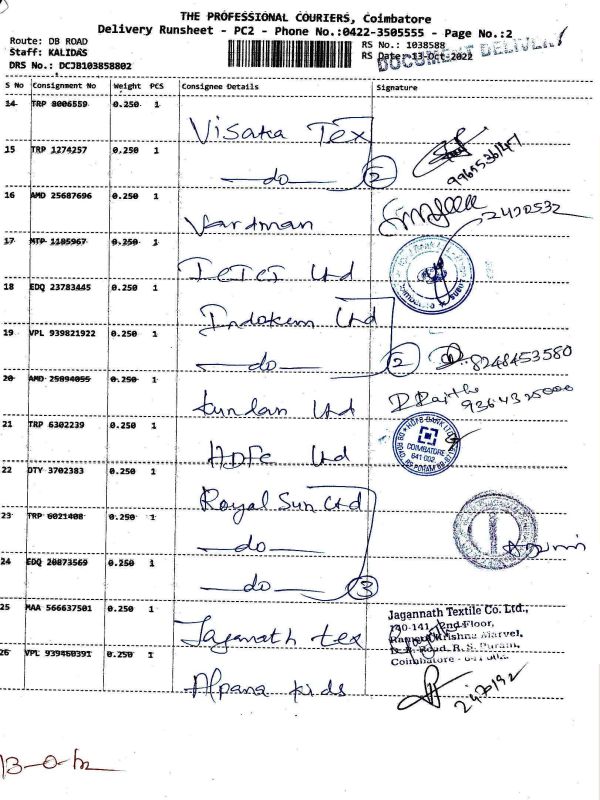 THE PROFESSIONAL COURIERS, Coimbatore
Delivery Runsheet - PC2 - Phone No.:0422-3505555 - Page No.:2
Route: DB ROAD
Staff: KALIDAS
DRS No.: DCJB103858802
RS No.: 1038588
RS Date: 13-Oct-2022
DOCUMENT DELIVERY
S No Consignment No Weight PCS Consignee Details Signature
14 TRP 8006559 0.250 1 Visaka Tex
15 TRP 1274257 0.250 1 do 2 9965536147
16 AMD 25687696 0.250 1 Vardman 2420532
17 MTP 1185967 0.250 1 Ltd
18 EDQ 23783445 0.250 1 Indokem Ltd
19 VPL 939821922 0.250 1 do 2 8248453580
20 AMD 25894055 0.250 1 Ltd 9364325000
21 TRP 6302239 0.250 1 HDFC Ltd
HDFC BANK LTD
COIMBATORE
641 002
22 DTY 3702383 0.250 1 Royal Sun Ltd
23 TRP 6021408 0.250 1 do
24 EDQ 20873569 0.250 1 do 3
25 MAA 566637501 0.250 1 Jaganath tex
Jagannath Textile Co. Ltd.,
140-141, 2nd Floor,
Ramakrishna Marvel,
D. B. Road, R. S. Puram,
Coimbatore - 641 002.
26 VPL 939460391 0.250 1 Alpana kids 2470192